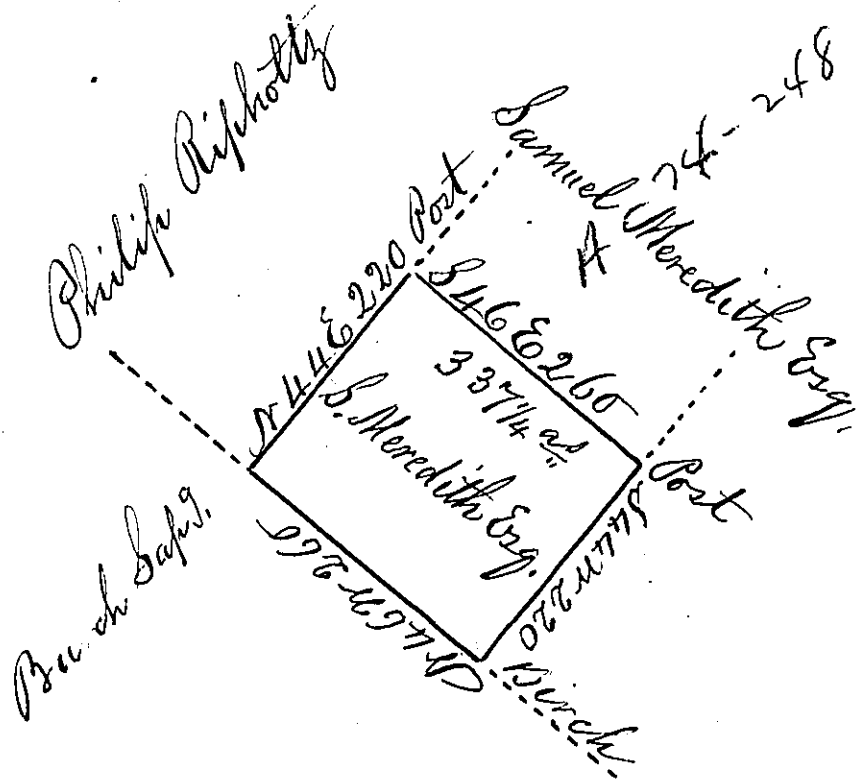 Philip Ripholtz
Samuel Meredith Esq.
A 74-248
Post
N44E220
S46E260
337 1/4 as
S. Meredith Esq.
Post
S44W220
N46W260
Birch
Sapg.